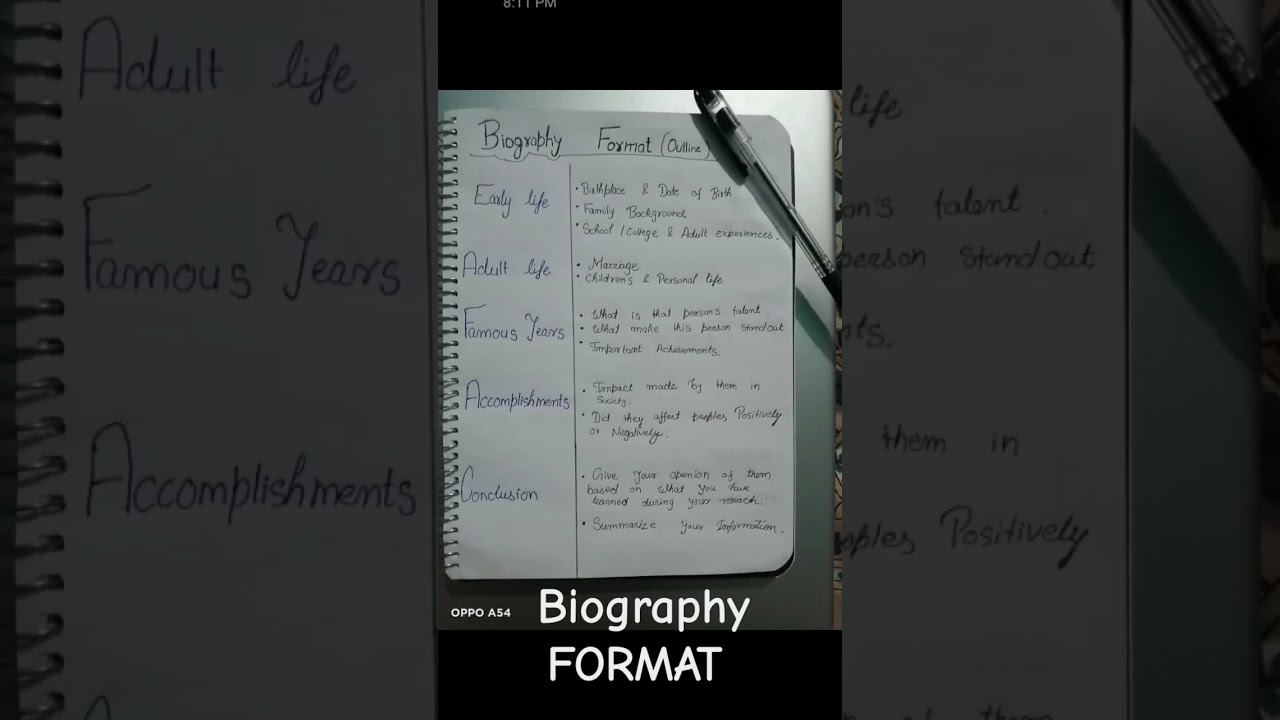 8:11 PM
Biography Format (Outline)
Early life
• Birthplace & Date of Birth
• Family Background.
• School / College & Adult experiences.
Adult life
• Marriage
• Children's & Personal life
Famous Years
• What is that person's talent.
• What make this person standout
• Important Acheivements.
Accomplishments
• Impact made by them in
Society.
• Did they affect peoples Positively
or Negatively.
Conclusion
• Give your openion of them
based on what you have
learned during your reseach.
• Summarize your Information.
OPPO A54
Biography
FORMAT
Adult life
Famous Years
Accomplishments
life
talent.
person standout
them in
Positively